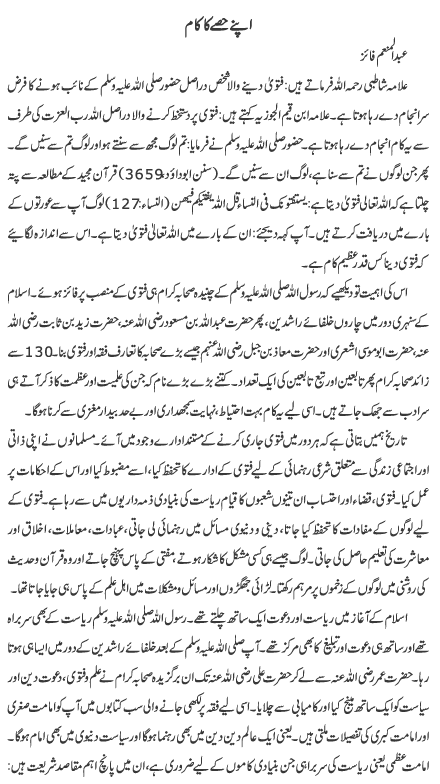 اپنے حصے کا کام
عبدالمنعم فائز
علامہ شاطبی رحمہ اللہ فرماتے ہیں: فتویٰ دینے والا شخص دراصل حضور صلی اللہ علیہ وسلم کے نائب ہونے کا فرض
سرانجام دے رہا ہوتا ہے۔ علامہ ابن قیم الجوزیہ کہتے ہیں: فتویٰ پر دستخط کرنے والا دراصل اللہ رب العزت کی طرف
سے یہ کام انجام دے رہا ہوتا ہے۔ حضور صلی اللہ علیہ وسلم نے فرمایا: تم لوگ مجھ سے سنتے ہو اور لوگ تم سے سنیں گے۔
پھر جن لوگوں نے تم سے سنا ہے، لوگ ان سے سنیں گے۔ (سنن ابوداؤد: 3659) قرآن مجید کے مطالعہ سے پتہ
چلتا ہے کہ اللہ تعالیٰ فتویٰ دیتا ہے: یستفتونک فی النساء قل اللہ یفتیکم فیھن (النساء: 127) لوگ آپ سے عورتوں کے
بارے میں دریافت کرتے ہیں۔ آپ کہہ دیجئے: ان کے بارے میں اللہ تعالیٰ فتویٰ دیتا ہے۔ اس سے اندازہ لگائیے
کہ فتویٰ دینا کس قدر عظیم کام ہے۔
اس کی اہمیت تو دیکھیے کہ رسول اللہ صلی اللہ علیہ وسلم کے چنیدہ صحابہ کرام ہی فتویٰ کے منصب پر فائز ہوئے۔ اسلام
کے سنہری دور میں چاروں خلفائے راشدین، پھر حضرت عبداللہ بن مسعود رضی اللہ عنہ، حضرت زید بن ثابت رضی اللہ
عنہ، حضرت ابوموسیٰ اشعری اور حضرت معاذ بن جبل رضی اللہ عنہم جیسے بڑے صحابہ کا تعارف فقہ اور فتویٰ بنا۔ 130 سے
زائد صحابہ کرام پھر تابعین اور تبع تابعین کی ایک تعداد۔ کتنے بڑے بڑے نام کہ جن کی علمیت اور عظمت کا ذکر آتے ہی
سر ادب سے جھک جاتے ہیں۔ اسی لیے یہ کام بہت احتیاط، نہایت سمجھداری اور بے حد بیدار مغزی سے کرنا ہوگا۔
تاریخ ہمیں بتاتی ہے کہ ہر دور میں فتویٰ جاری کرنے کے مستند ادارے وجود میں آئے۔ مسلمانوں نے اپنی ذاتی
اور اجتماعی زندگی سے متعلق شرعی رہنمائی کے لیے فتویٰ کے ادارے کا تحفظ کیا، اسے مضبوط کیا اور اس کے احکامات پر
عمل کیا۔ فتویٰ، قضاء اور احتساب ان تینوں شعبوں کا قیام ریاست کی بنیادی ذمہ داریوں میں سے رہا ہے۔ فتویٰ کے
لیے لوگوں کے مفادات کا تحفظ کیا جاتا، دینی و دنیوی مسائل میں رہنمائی لی جاتی، عبادات، معاملات، اخلاق اور
معاشرت کی تعلیم حاصل کی جاتی۔ لوگ جیسے ہی کسی مشکل کا شکار ہوتے، مفتی کے پاس پہنچ جاتے اور وہ قرآن و حدیث
کی روشنی میں لوگوں کے زخموں پر مرہم رکھتا۔ لڑائی جھگڑوں اور مسائل و مشکلات میں اہل علم کے پاس ہی جایا جاتا تھا۔
اسلام کے آغاز میں ریاست اور دعوت ایک ساتھ چلتے تھے۔ رسول اللہ صلی اللہ علیہ وسلم ریاست کے بھی سربراہ
تھے اور ساتھ ہی دعوت اور تبلیغ کا بھی مرکز تھے۔ آپ صلی اللہ علیہ وسلم کے بعد خلفائے راشدین کے دور میں ایسا ہی ہوتا
رہا۔ حضرت عمر رضی اللہ عنہ سے لے کر حضرت علی رضی اللہ عنہ تک ان برگزیدہ صحابہ کرام نے علم و فتویٰ، دعوت دین اور
سیاست کو ایک ساتھ مینج کیا اور کامیابی سے چلایا۔ اسی لیے فقہ پر لکھی جانے والی سب کتابوں میں آپ کو امامت صغریٰ
اور امامت کبریٰ کی تفصیلات ملتی ہیں۔ یعنی ایک عالم دین دین میں بھی رہنما ہوگا اور سیاست دنیوی میں بھی امام ہوگا۔
امامت عظمیٰ یعنی ریاست کی سربراہی جن بنیادی کاموں کے لیے ضروری ہے، ان میں پانچ اہم مقاصد شریعت ہیں: